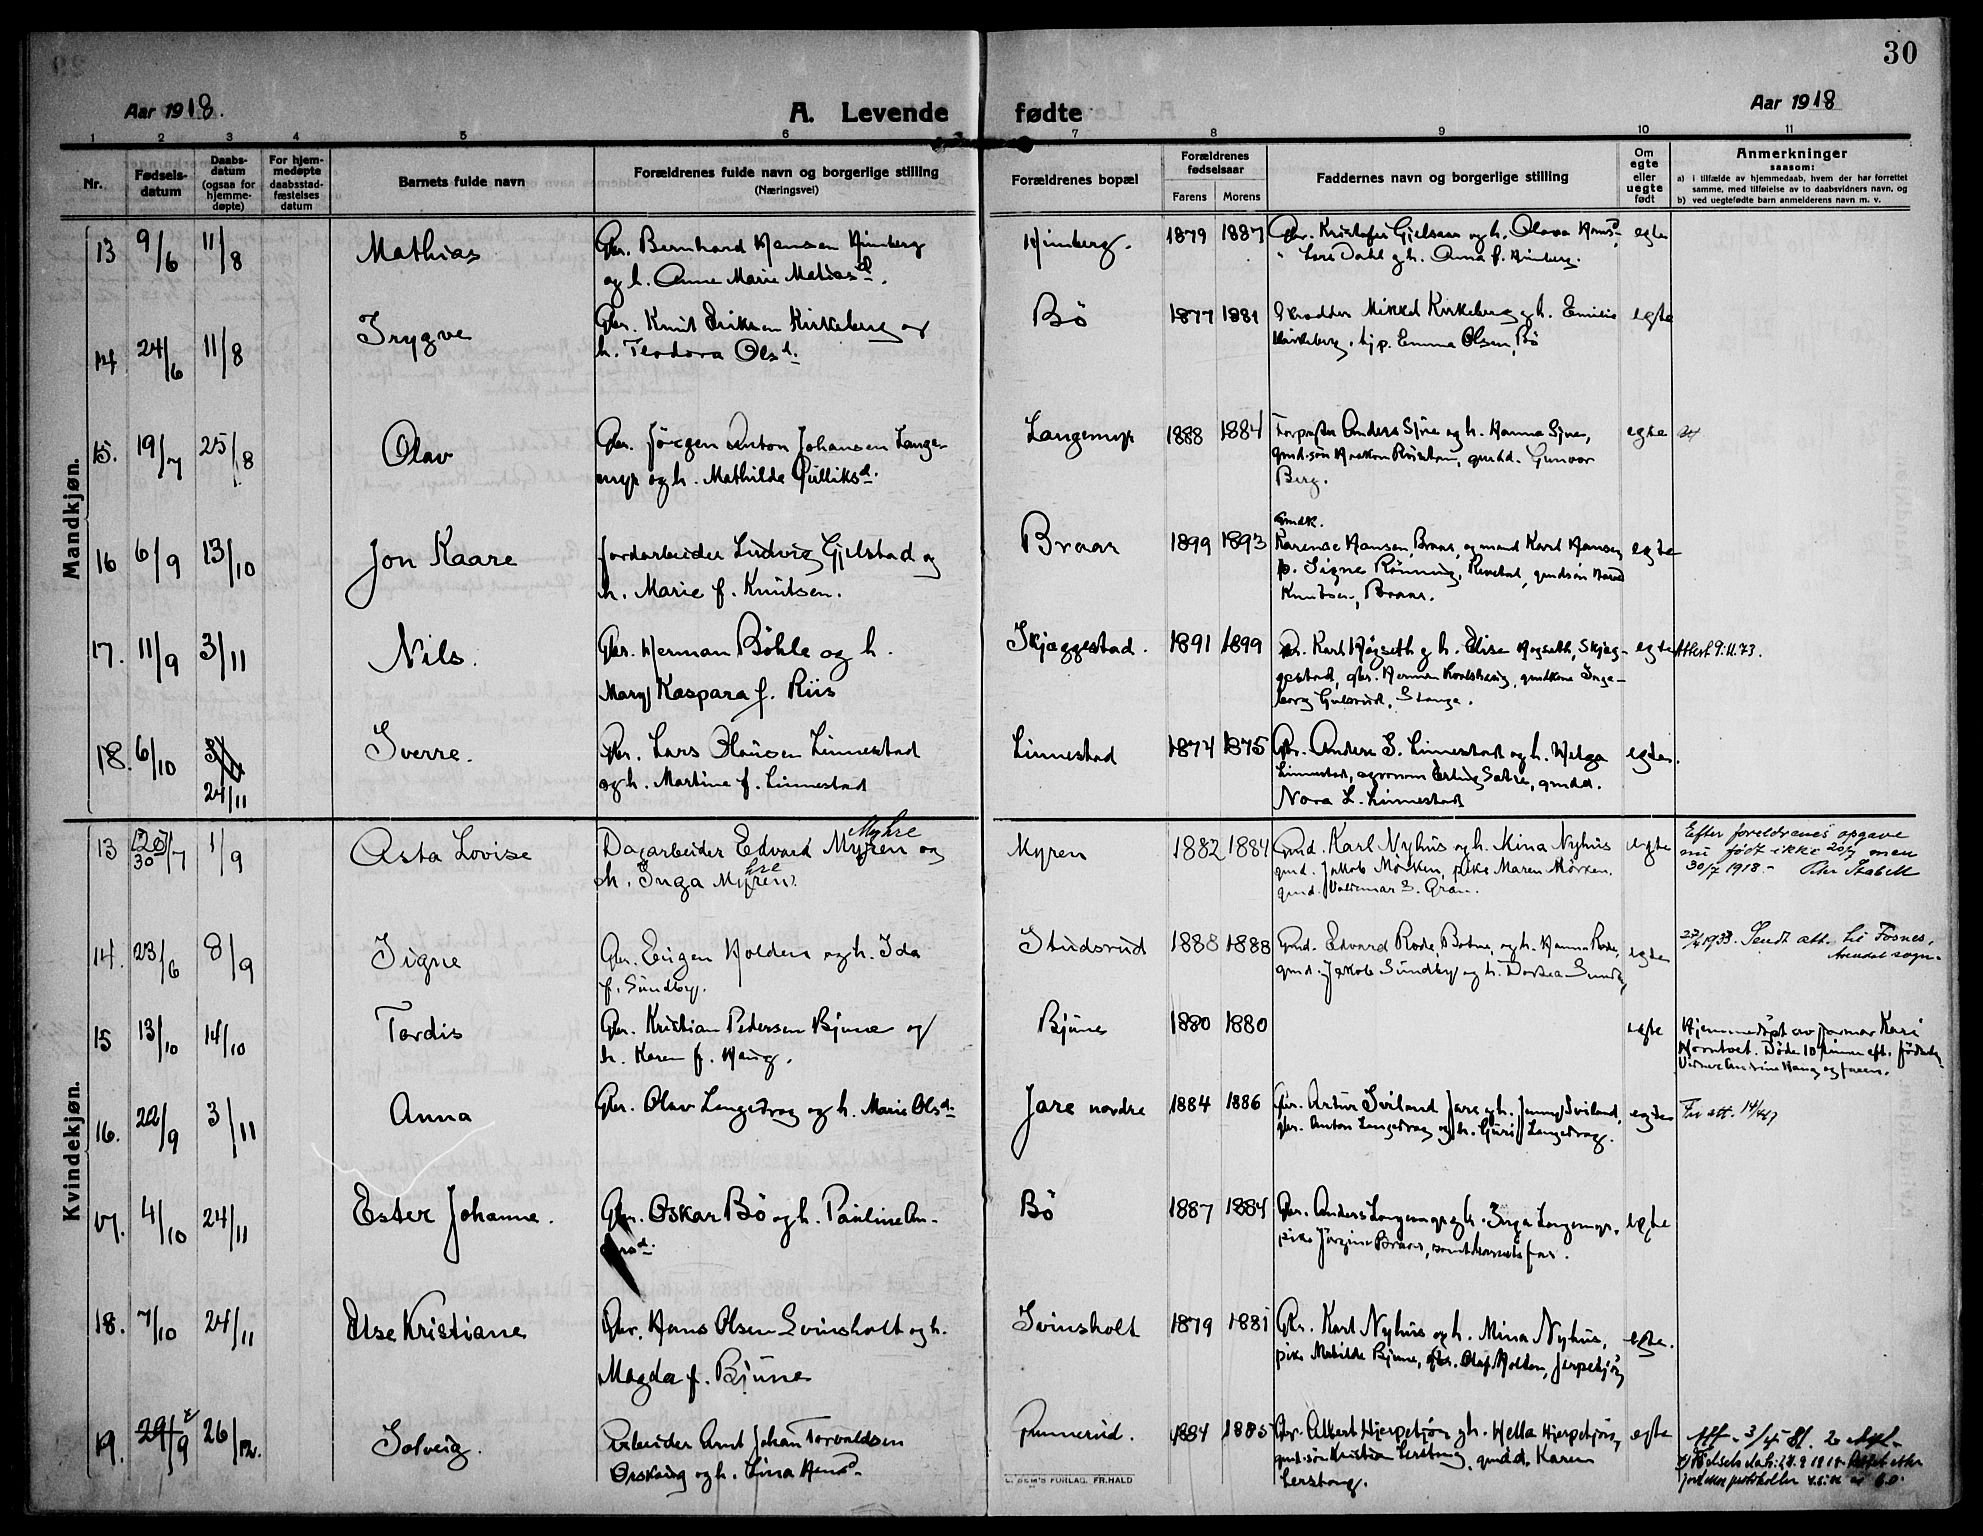 30
Aar 1918.
A. Levende fødte
Aar 1918
1 2 3 4 5 6 7 8 9 10 11
Nr.
Fødsels-
datum
Daabs-
datum
(ogsaa for
hjemme-
døpte)
For hjem-
medøpte
daabsstad-
fæstelses
datum
Barnets fulde navn
Forældrenes fulde navn og borgerlige stilling
(Næringsvei)
Forældrenes bopæl
Forældrenes
fødselsaar
Farens Morens
Faddernes navn og borgerlige stilling
Om
egte
eller
uegte
født
Anmerkninger
saasom:
a) i tilfælde av hjemmedaab, hvem der har forrettet
samme, med tilføielse av to daabsvidners navn, og
b) ved uegtefødte barn anmelderens navn m. v.
Mandkjøn.
13 9/6 11/8 Mathias
Gbr. Bernhard Hansen Himberg
og h. Anne Marie Matiasd.
Himberg. 1879 1887
Gbr. Kristofer Gjelsaas og h. Olava Hansd.,
" Lars Dahl og h. Anna f. Himberg.
egte
14 24/6 11/8 Trygve
Gbr. Knut Eriksen Kirkeberg og
h. Teodora Olsd.
Bö 1877 1881
Skrædder Mikkel Kirkeberg og h. Emilie
Kirkeberg, tjp. Emma Olsen, Bö
egte
15. 19/7 25/8 Olav
Gbr. Jörgen Anton Johansen Lange-
myr og h. Mathilde Gulliksd.
Langemyr 1888 1884
Anders og h. Hanna
gmd.sön Haakon gmdd. Gunvor
Berg.
egte
16 6/9 13/10 Jon Kaare
Jordarbeider Ludvig Gjelstad og
h. Marie f. Knutsen.
Braar 1899 1893
Gmdk.
Karense Hansen, Braar, og mand Karl Hansen
p. Signe Rönning, gmdsön
Knutsen, Braar.
egte
17. 11/9 3/11 Nils.
Gbr. Herman Böhle og h.
Mary Kaspara f. Riis
Skjæggestad. 1891 1899
Gbr. Karl Høgseth og h. Elise Høgseth, Skjæg-
gestad, gbr. Herman gmdkone Inge-
borg Stange.
egte Attest 9.11.73.
18. 6/10 24/11 Sverre.
Gbr. Lars Olausen Linnestad
og h. Martine f. Linnestad
Linnestad 1874 1875
Gbr. Anders S. Linnestad og h. Helga
Linnestad, agronom Erling Sætre, gmdd.
Nora L. Linnestad
egte.
Kvindekjøn.
13 20/7 30 1/9 Asta Lovise
Dagarbeider Edvard Myren Myhre og
h. Inga Myren hre
Myren 1882 1884
Gmd. Karl Nyhus og h. Mina Nyhus
gmd. Jakob Mörken, pike Maren Mörken.
gmd. Valdemar S. Gran.
egte
Efter foreldrenes opgave
nu født ikke 20/7 men
30/7 1918. - Peter Stabell
14. 23/6 8/9 Signe
Gbr. Eugen Holden og h. Ida
f. Sundby.
Studsrud 1888 1888
Gmd. Edvard Rode, Botne, og h. Hanna Rode,
gmd. Jakob Sundby og h. Dortea Sundby,
egte
1933. Sendt att. til Fosnes,
Arendal sogn.
15 13/10 14/10 Tordis
Gbr. Kristian Pedersen Bjune og
h. Karen f. Haug.
Bjune 1880 1880
egte
Hjemmedöpt av farmor Kari
Horntvet. Döde 10 timer eft. födselen
Vidner Andrine Haug og faren.
16. 22/9 3/11 Anna
Gbr. Olav Langedrag og h. Marie Olsd.
Jare nordre 1884 1886
Gbr. Artur Sviland Jare og h. Jenny Sviland,
gbr. Anton Langedrag og h. Guri Langedrag.
egte
Fu att. 14/4 47
17. 4/10 24/11 Ester Johanne.
Gbr. Oskar Bö og h. Pauline An-
dersd.
Bö 1887 1884
Gbr. Anders Langemyr og h. Inga Langemyr,
pike Jörgine Braar, samt barnets far.
egte
18. 7/10 24/11 Else Kristiane
Gbr. Hans Olsen Svinsholt og h.
Magda f. Bjune
Svinsholt 1879 1881
Gbr. Karl Nyhus og h. Mina Nyhus,
pike Matilde Bjune, gbr. Olaf Holden, Jerpetjön
egte.
19. 29/9 26/12. Solveig.
Arbeider Arnt Johan Torvaldsen
Örskaug og h. Lina Hansd.
Gunnerud. 1884 1885
Gbr. Albert Hjerpetjön og h. Hella Hjerpetjön,
gmd.sön Kristian Lerstang, gmdd. Karen
Lerstang.
egte
Att. 3/45
Fødselsdato: 28.9.1918. Rettet etter
jordmorprotokollen
E. SEM'S FORLAG, FR.HALD